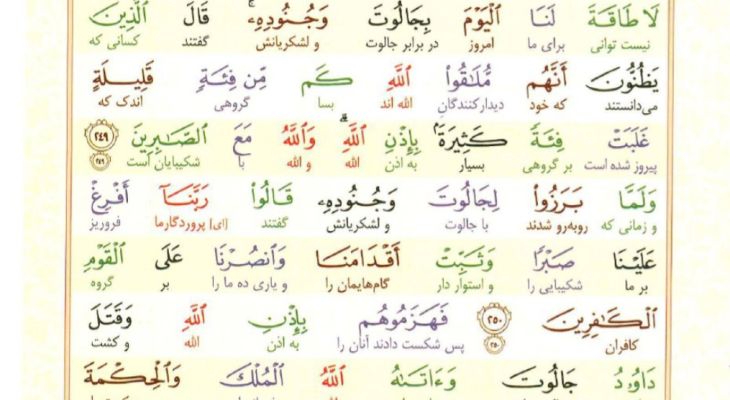 لَا طَاقَةَ لَنَا ٱلۡيَوۡمَ بِجَالُوتَ وَجُنُودِهِۦۚ قَالَ ٱلَّذِينَ
نیست توانی برای ما امروز در برابر جالوت و لشکریانش گفتند کسانی که
يَظُنُّونَ أَنَّهُم مُّلَٰقُواْ ٱللَّهِ كَم مِّن فِئَةٖ قَلِيلَةٍ
می‌دانستند که خود دیدارکنندگانِ الله اند بسا گروهی اندک که
غَلَبَتۡ فِئَةٗ كَثِيرَةَۢ بِإِذۡنِ ٱللَّهِۗ وَٱللَّهُ مَعَ ٱلصَّٰبِرِينَ ٢٤٩
پیروز شده است بر گروهی بسیار به اذن الله و الله با شکیبایان است ٢٤٩
وَلَمَّا بَرَزُواْ لِجَالُوتَ وَجُنُودِهِۦ قَالُواْ رَبَّنَآ أَفۡرِغۡ
و زمانی که روبه‌رو شدند با جالوت و لشکریانش گفتند [ای] پروردگارما فروریز
عَلَيۡنَا صَبۡرٗا وَثَبِّتۡ أَقۡدَامَنَا وَٱنصُرۡنَا عَلَى ٱلۡقَوۡمِ
بر ما شکیبایی را و استوار دار گام‌هایمان را و یاری ده ما را بر گروه
ٱلۡكَٰفِرِينَ ٢٥٠ فَهَزَمُوهُم بِإِذۡنِ ٱللَّهِ وَقَتَلَ
کافران ٢٥٠ پس شکست دادند آنان را به اذن الله و کشت
دَاوُۥدُ جَالُوتَ وَءَاتَىٰهُ ٱللَّهُ ٱلۡمُلۡكَ وَٱلۡحِكۡمَةَ